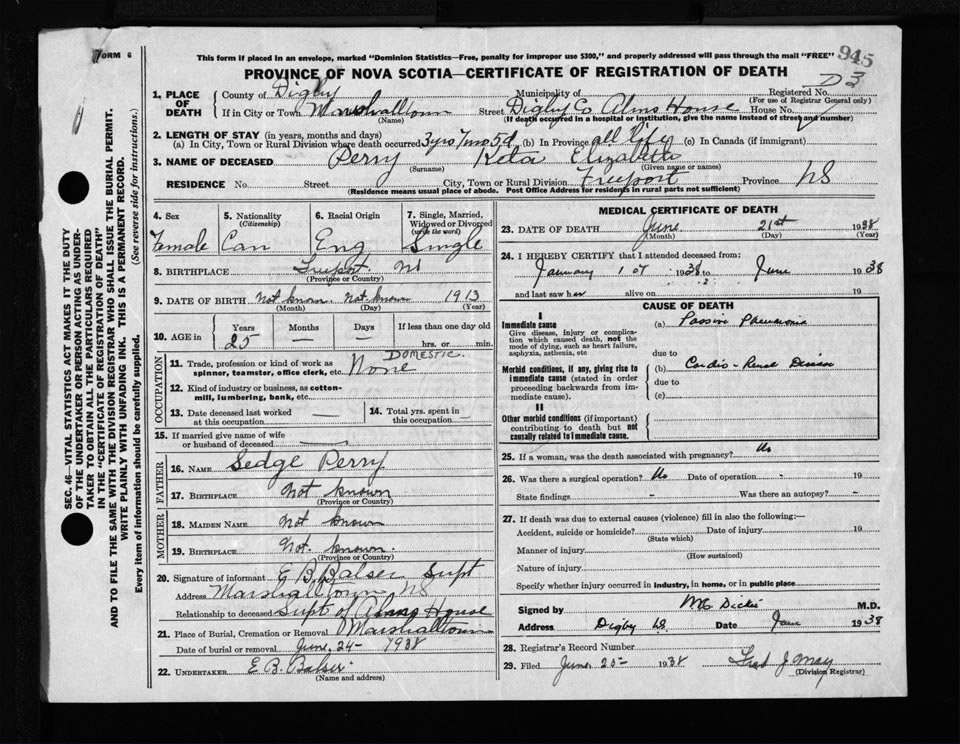 FORM 6
This form if placed in an envelope, marked "Dominion Statistics—Free, penalty for improper use $300," and properly addressed will pass through the mail "FREE"
945
PROVINCE OF NOVA SCOTIA—CERTIFICATE OF REGISTRATION OF DEATH
D 3
1. PLACE OF DEATH County of Digby Municipality of Registered No. (For use of Registrar General only)
If in City or Town Marshalltown (Name) Street Digby Co Alms House House No.
(If death occurred in a hospital or institution, give the name instead of street and number)
2. LENGTH OF STAY (in years, months and days)
(a) In City, Town or Rural Division where death occurred 3 yrs 7 mo 5 d (b) In Province all life (c) In Canada (if immigrant)
3. NAME OF DECEASED Perry (Surname) Elizabeth (Given name or names)
RESIDENCE No. Street City, Town or Rural Division Freeport Province NS
(Residence means usual place of abode. Post Office Address for residents in rural parts not sufficient)
SEC. 46—VITAL STATISTICS ACT MAKES IT THE DUTY
OF THE UNDERTAKER OR PERSON ACTING AS UNDER-
TAKER TO OBTAIN ALL THE PARTICULARS REQUIRED
IN THE "CERTIFICATE OF REGISTRATION OF DEATH"
AND TO FILE THE SAME WITH THE DIVISION REGISTRAR WHO SHALL ISSUE THE BURIAL PERMIT.
WRITE PLAINLY WITH UNFADING INK. THIS IS A PERMANENT RECORD.
Every item of information should be carefully supplied. (See reverse side for instructions.)
4. Sex Female
5. Nationality (Citizenship) Can
6. Racial Origin Eng
7. Single, Married, Widowed or Divorced (write the word) Single
8. BIRTHPLACE Freeport NS (Province or Country)
9. DATE OF BIRTH Not known Not known 1913
(Month) (Day) (Year)
10. AGE in Years 25 Months — Days — If less than one day old hrs. or min.
OCCUPATION
11. Trade, profession or kind of work as spinner, teamster, office clerk, etc. None DOMESTIC.
12. Kind of industry or business, as cotton-mill, lumbering, bank, etc.
13. Date deceased last worked at this occupation —
14. Total yrs. spent in this occupation —
15. If married give name of wife or husband of deceased —
FATHER
16. NAME Sedge Perry
17. BIRTHPLACE Not known (Province or Country)
MOTHER
18. MAIDEN NAME Not known
19. BIRTHPLACE Not known. (Province or Country)
20. Signature of informant E B Balser Supt
Address Marshalltown NS
Relationship to deceased Supt of Alms House
21. Place of Burial, Cremation or Removal Marshalltown
Date of burial or removal June 24— 1938
22. UNDERTAKER E. B. Balser
(Name and address)
MEDICAL CERTIFICATE OF DEATH
23. DATE OF DEATH June 21st 1938
(Month) (Day) (Year)
24. I HEREBY CERTIFY that I attended deceased from:
January 1st 1938 to June 1938
and last saw her alive on 19
CAUSE OF DEATH
I
Immediate cause
Give disease, injury or complication which caused death, not the mode of dying, such as heart failure, asphyxia, asthenia, etc
(a) Passive Pneumonia
due to
Morbid conditions, if any, giving rise to immediate cause (stated in order proceeding backwards from immediate cause).
(b) Cardio-Renal Disease
due to
(c)
II
Other morbid conditions (if important) contributing to death but not causally related to immediate cause.
25. If a woman, was the death associated with pregnancy? No
26. Was there a surgical operation? No Date of operation - 19
State findings — Was there an autopsy? -
27. If death was due to external causes (violence) fill in also the following:—
Accident, suicide or homicide? (State which) Date of injury 19
Manner of injury (How sustained)
Nature of injury
Specify whether injury occurred in industry, in home, or in public place
Signed by Dickie M.D.
Address Digby NS. Date June 1938
28. Registrar's Record Number
29. Filed June 25— 1938 Fred J May
(Division Registrar)